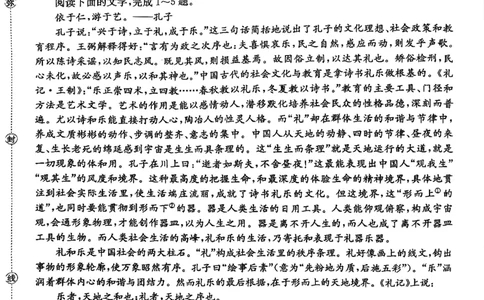 弥
阅读下面的文字,完成1～5题。
依于仁,游于艺。——孔子
孔子说:“兴于诗,立于礼,成于乐。”这三句话简括地说出了孔子的文化理想、社会政策和教
育程序。王弼解释得好:“言有为政之次序也:夫喜惧哀乐,民之自然,感应而动,则发乎声歌。
所以陈诗采谣,以知民志风。既见其风,则损益基焉。故因俗立制,以达其礼也。矫俗检刑,民
心未化,故必感以声乐,以和其神也。”中国古代的社会文化与教育是拿诗书礼乐做根基的。《礼
记·王制》:“乐正崇四术,立四教……春秋教以礼乐,冬夏教以诗书。”教育的主要工具、门径和
方法是艺术文学。艺术的作用是能以感情动人,潜移默化培养社会民众的性格品德,深刻而普
遍。尤以诗和乐能直接打动人心,陶冶人的性灵人格。而“礼”却在群体生活的和谐与节律中,
养成文质彬彬的动作、步调的整齐、意志的集中。中国人从天地的动静、四时的节律、昼夜的来
封
复、生长老死的绵延感到宇宙是生生而具条理的。这“生生而条理”就是天地运行的大道,就是
一切现象的体和用。孔子在川上曰:“逝者如斯夫,不舍昼夜!”这最能表现出中国人“观我生”
“观其生”的风度和境界。这种最高度的把握生命,和最深度的体验生命的精神境界,具体地贯
注到社会实际生活里,使生活端庄流丽,成就了诗书礼乐的文化。但这境界,这“形而上①的
道”,也同时要能贯彻到形而下②的器。器是人类生活的日用工具。人类能仰观俯察,构成宇宙
观,会通形象物理,才能创作器皿,以为人生之用。器是离不开人生的,而人也成了离不开器皿
工具的生物。而人类社会生活的高峰,礼和乐的生活,乃寄托和表现于礼器乐器。
礼和乐是中国社会的两大柱石。“礼”构成社会生活里的秩序条理。礼好像画上的线文,钩出
事物的形象轮廓,使万象昭然有序。孔子曰“绘事后素”(意为“先粉地为质,后施五彩”)。“乐”涵
线
润着群体内心的和谐与团结力。然而礼乐的最后根据,在于形而上的天地境界。《礼记》上说:
乐者,天地之和也;礼者,天地之序也。